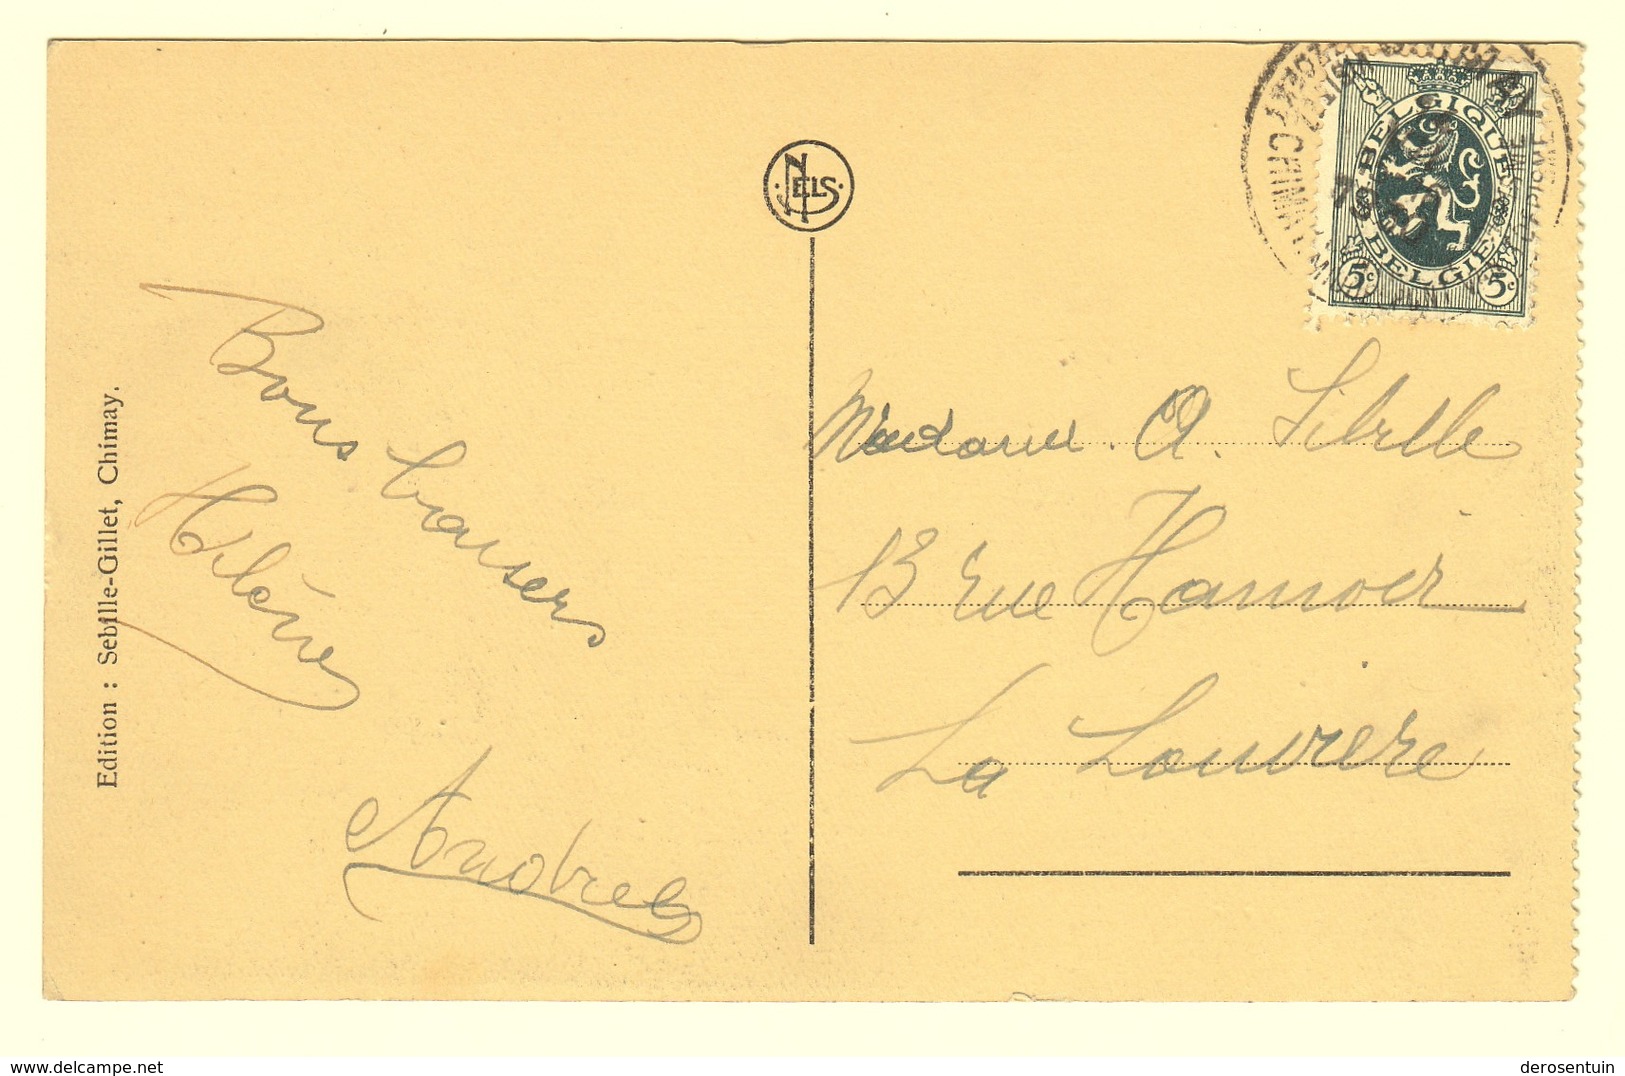 Edition : Sebille-Gillet, Chimay.
NELS
Bons baisers
Hélène
Andrée
BELGIQUE
BELGIE
5c 5c
CHIMAY
Madame A. Sibille
13 rue Hamoir
La Louvrere
delcampe.net
derosentuin